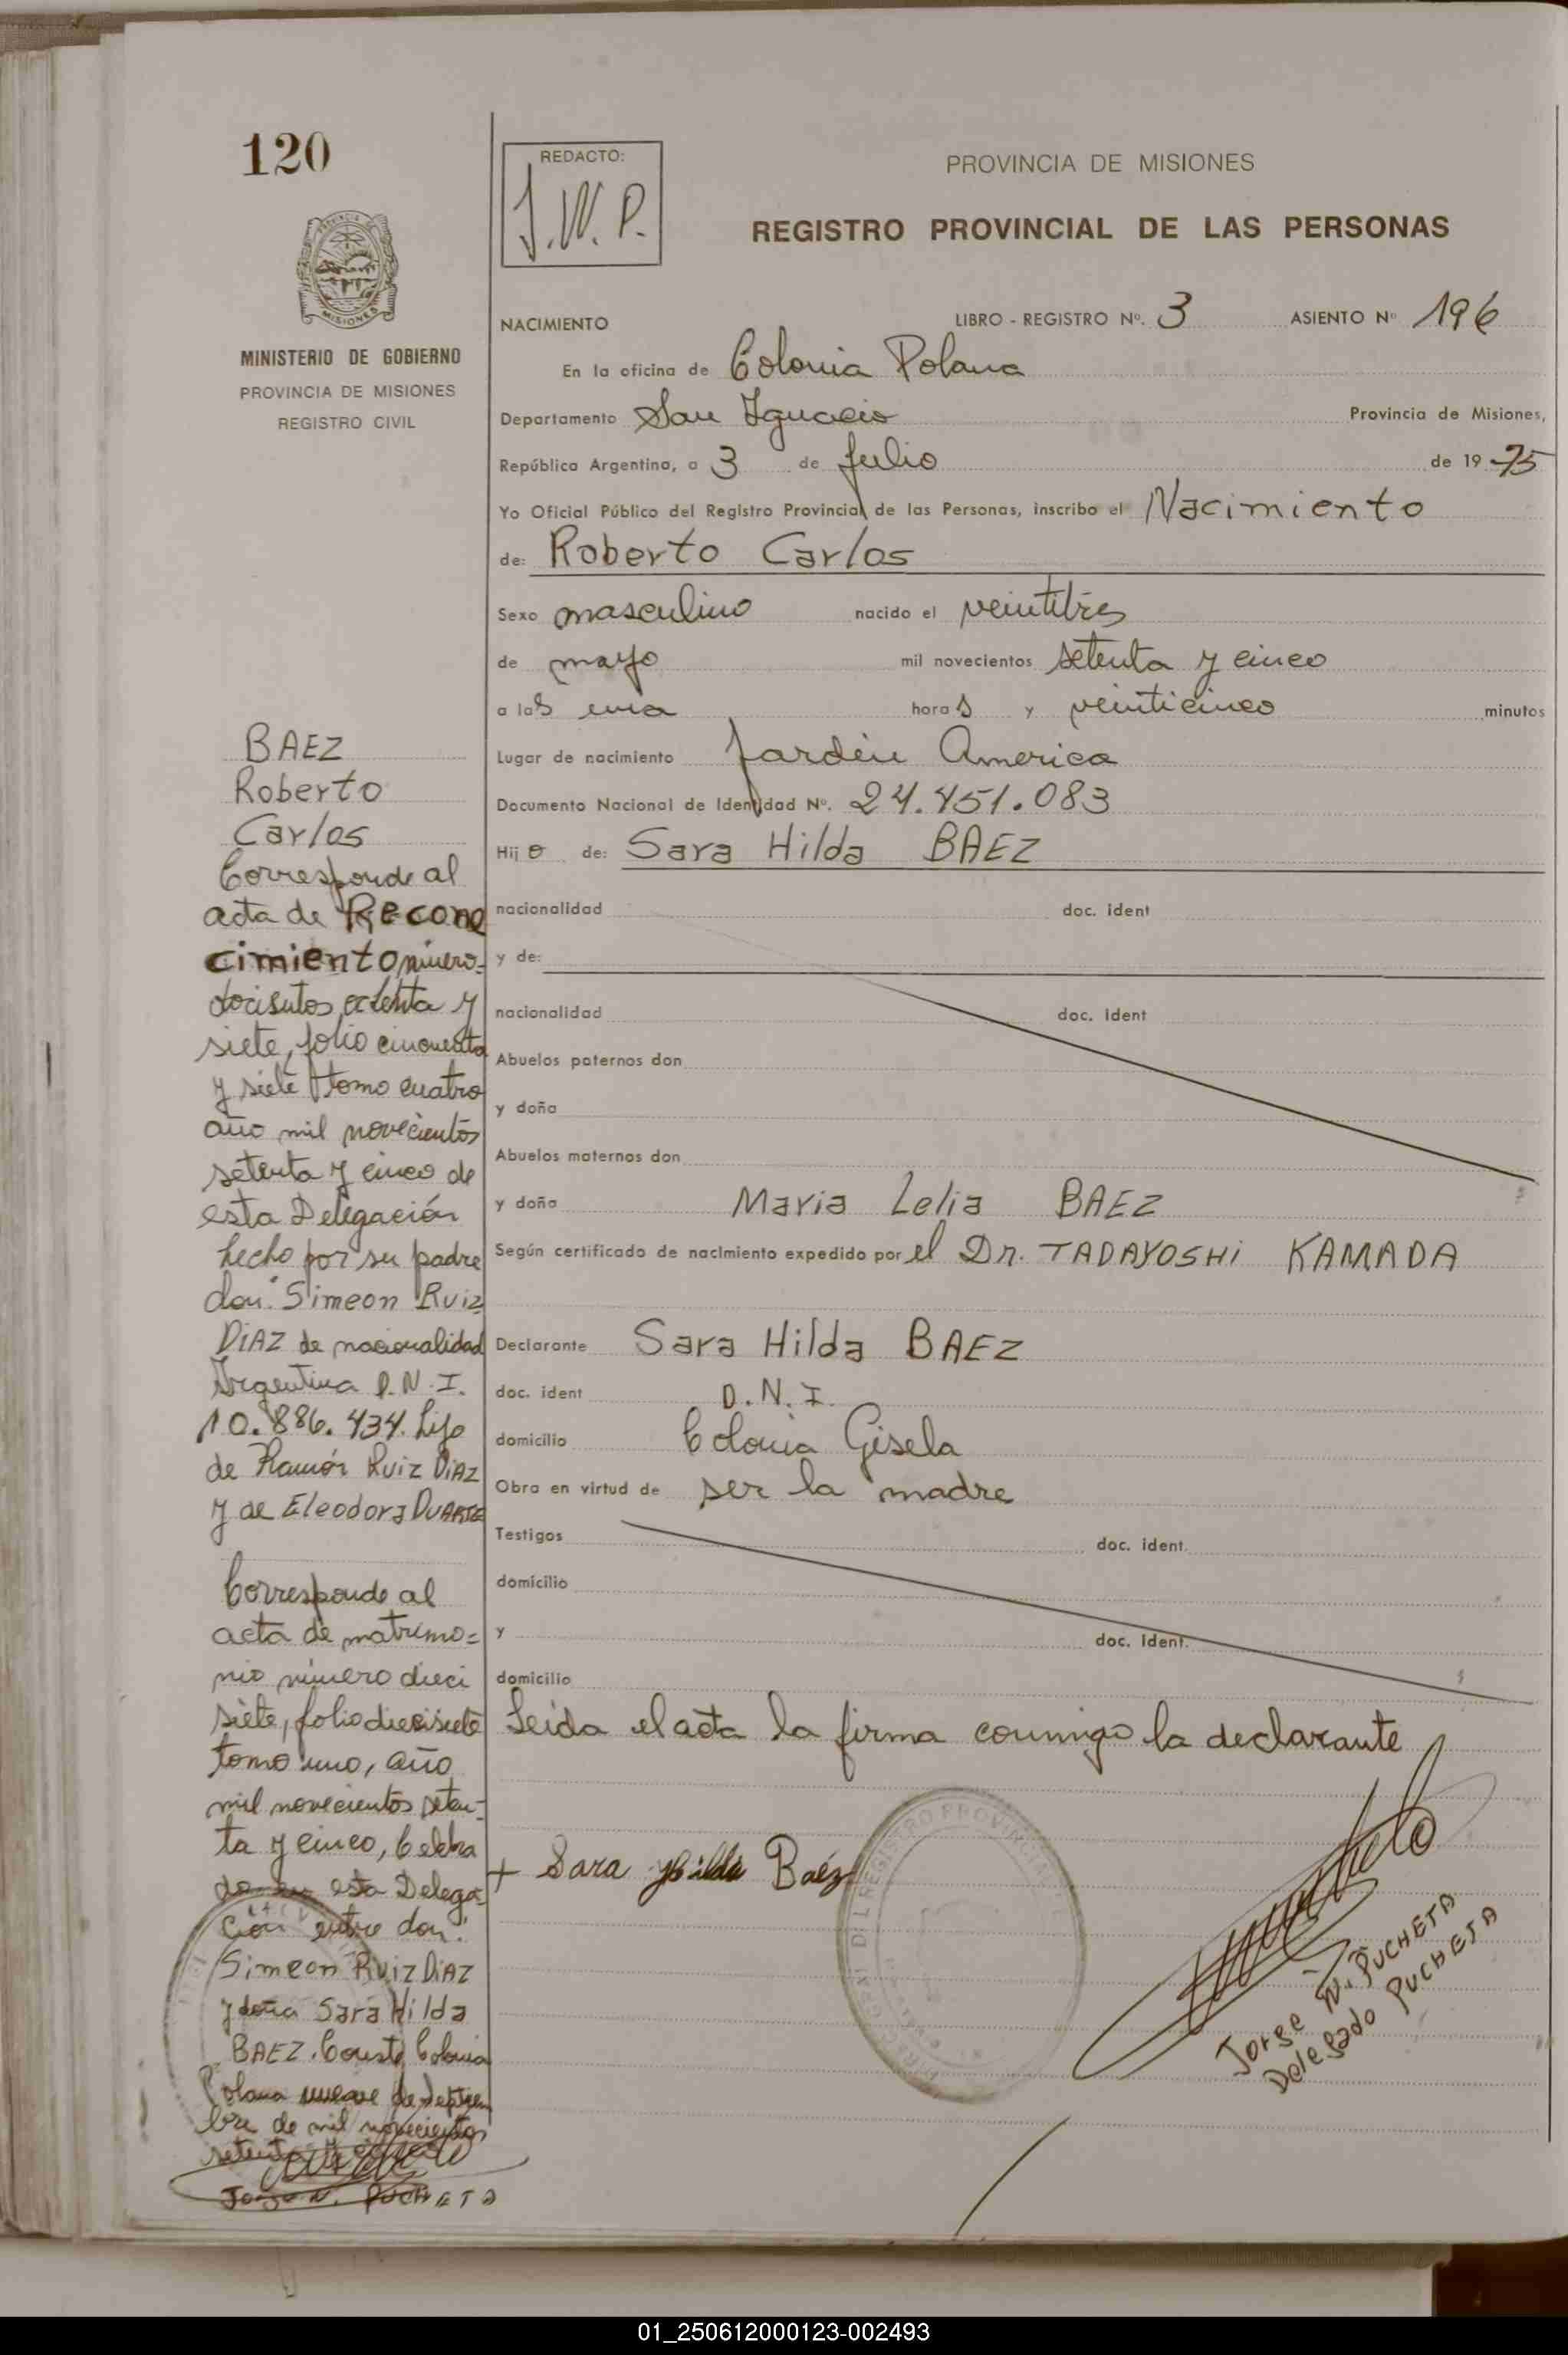 120
MISIONES
MINISTERIO DE GOBIERNO
PROVINCIA DE MISIONES
REGISTRO CIVIL
BAEZ
Roberto
Carlos
Corresponde al
acta de Recono
cimiento número=
docisutos, octenta y
siete, folio cincuenta
y siete tomo cuatro
año mil novecientos
setenta y cinco de
esta Delegación
hecho por su padre
don: Simeon Ruiz
DIAZ de nacionalidad
Argentina D.N.I.
10.886.434. hijo
de Ramón Ruiz DIAZ
y de Eleodora DUARTE
Corresponde al
acta de matrimo=
nio número dieci
siete, folio diecisiete
tomo uno, año
mil novecientos seten-
ta y cinco, Celebra
do en esta Delega-
ción entre don:
Simeon Ruiz DIAZ
y doña Sara Hilda
BAEZ. Conste, Colonia
Polana nueve de septiem
bre de mil novecientos
setenta y cinco
Jorge N. PUCHETA
REDACTO:
J.W.P.
PROVINCIA DE MISIONES
REGISTRO PROVINCIAL DE LAS PERSONAS
NACIMIENTO LIBRO - REGISTRO Nº. 3 ASIENTO Nº 196
En la oficina de Colonia Polana
Departamento San Ignacio Provincia de Misiones,
República Argentina, a 3 de Julio de 19 75
Yo Oficial Público del Registro Provincial de las Personas, inscribo el Nacimiento
de: Roberto Carlos
Sexo masculino nacido el veintitrés
de mayo mil novecientos setenta y cinco
a las una horas y veinticinco minutos
Lugar de nacimiento Jardín America
Documento Nacional de Identidad Nº. 24.451.083
Hijo de: Sara Hilda BAEZ
nacionalidad doc. ident
y de:
nacionalidad doc. ident
Abuelos paternos don
y doña
Abuelos maternos don
y doña Maria Lelia BAEZ
Según certificado de nacimiento expedido por el Dr. TADAYOSHI KAMADA
Declarante Sara Hilda BAEZ
doc. ident D.N.I.
domicilio Colonia Gisela
Obra en virtud de ser la madre
Testigos doc. ident.
domicilio
y doc. ident.
domicilio
Leida el acta la firma conmigo la declarante
+ Sara Hilda Baéz
Jorge N. PUCHETA
Delegado PUCHETA
01_250612000123-002493